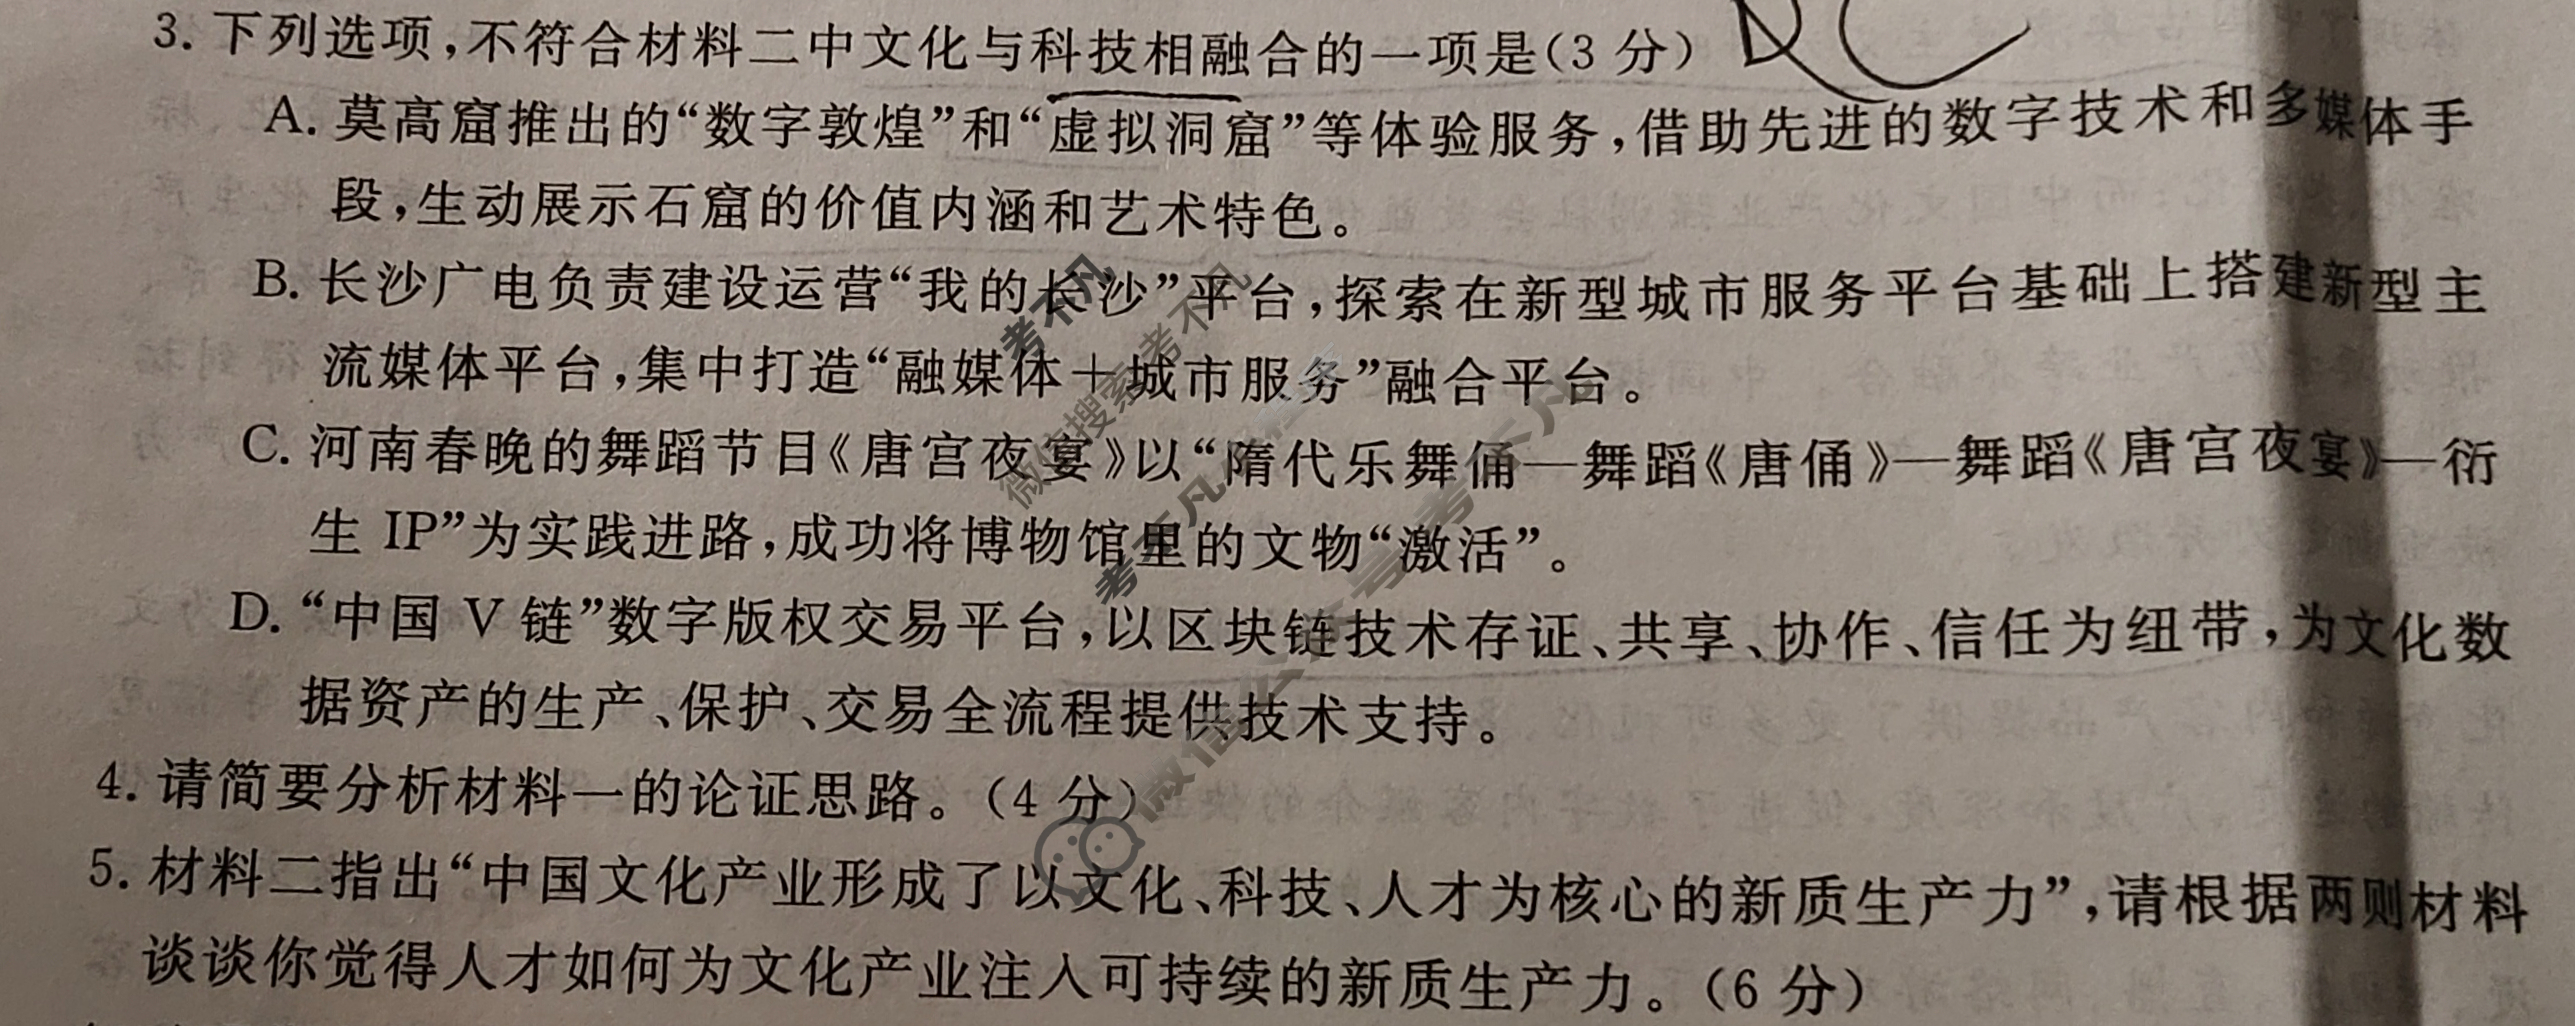 3. 下列选项,不符合材料二中文化与科技相融合的一项是(3 分) C
A. 莫高窟推出的“数字敦煌”和“虚拟洞窟”等体验服务,借助先进的数字技术和多媒体手
段,生动展示石窟的价值内涵和艺术特色。
B. 长沙广电负责建设运营“我的长沙”平台,探索在新型城市服务平台基础上搭建新型主
流媒体平台,集中打造“融媒体+城市服务”融合平台。
C. 河南春晚的舞蹈节目《唐宫夜宴》以“隋代乐舞俑—舞蹈《唐俑》—舞蹈《唐宫夜宴》—衍
生 IP”为实践进路,成功将博物馆里的文物“激活”。
D. “中国 V 链”数字版权交易平台,以区块链技术存证、共享、协作、信任为纽带,为文化数
据资产的生产、保护、交易全流程提供技术支持。
4. 请简要分析材料一的论证思路。(4 分)
5. 材料二指出“中国文化产业形成了以文化、科技、人才为核心的新质生产力”,请根据两则材料
谈谈你觉得人才如何为文化产业注入可持续的新质生产力。(6 分)
考不凡
微信搜索考不凡
考不凡
微信公众号考不凡